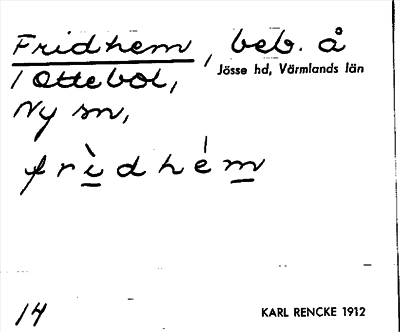 Fridhem, beb. å
1 Ottebol, Jösse hd, Värmlands län
Ny sn,
frìdhém
14 KARL RENCKE 1912